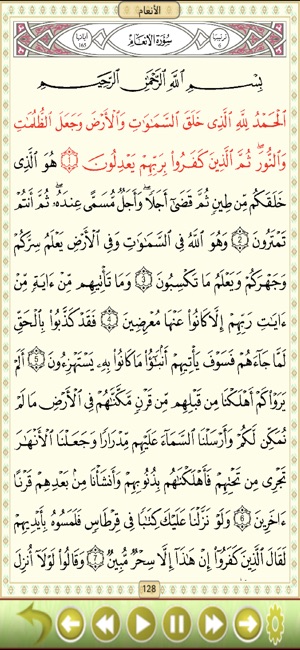 الأنعام
ترتيبها ٦ سُورَةُ الأَنْعَامِ آياتها ١٦٥
بِسْمِ اللَّهِ الرَّحْمَٰنِ الرَّحِيمِ
الْحَمْدُ لِلَّهِ الَّذِي خَلَقَ السَّمَٰوَٰتِ وَالْأَرْضَ وَجَعَلَ الظُّلُمَٰتِ
وَالنُّورَ ۖ ثُمَّ الَّذِينَ كَفَرُوا بِرَبِّهِمْ يَعْدِلُونَ ﴿١﴾ هُوَ الَّذِي
خَلَقَكُم مِّن طِينٍ ثُمَّ قَضَىٰ أَجَلًا ۖ وَأَجَلٌ مُّسَمًّى عِندَهُ ۖ ثُمَّ أَنتُمْ
تَمْتَرُونَ ﴿٢﴾ وَهُوَ اللَّهُ فِي السَّمَٰوَٰتِ وَفِي الْأَرْضِ يَعْلَمُ سِرَّكُمْ
وَجَهْرَكُمْ وَيَعْلَمُ مَا تَكْسِبُونَ ﴿٣﴾ وَمَا تَأْتِيهِم مِّنْ ءَايَةٍ مِّنْ
ءَايَٰتِ رَبِّهِمْ إِلَّا كَانُوا عَنْهَا مُعْرِضِينَ ﴿٤﴾ فَقَدْ كَذَّبُوا بِالْحَقِّ
لَمَّا جَاءَهُمْ فَسَوْفَ يَأْتِيهِمْ أَنبَٰٓؤُا مَا كَانُوا بِهِ يَسْتَهْزِءُونَ ﴿٥﴾ أَلَمْ
يَرَوْا كَمْ أَهْلَكْنَا مِن قَبْلِهِم مِّن قَرْنٍ مَّكَّنَّٰهُمْ فِي الْأَرْضِ مَا لَمْ
نُمَكِّن لَّكُمْ وَأَرْسَلْنَا السَّمَاءَ عَلَيْهِم مِّدْرَارًا وَجَعَلْنَا الْأَنْهَٰرَ
تَجْرِي مِن تَحْتِهِمْ فَأَهْلَكْنَٰهُم بِذُنُوبِهِمْ وَأَنشَأْنَا مِن بَعْدِهِمْ قَرْنًا
ءَاخَرِينَ ﴿٦﴾ وَلَوْ نَزَّلْنَا عَلَيْكَ كِتَٰبًا فِي قِرْطَاسٍ فَلَمَسُوهُ بِأَيْدِيهِمْ
لَقَالَ الَّذِينَ كَفَرُوا إِنْ هَٰذَا إِلَّا سِحْرٌ مُّبِينٌ ﴿٧﴾ وَقَالُوا لَوْلَا أُنزِلَ
128